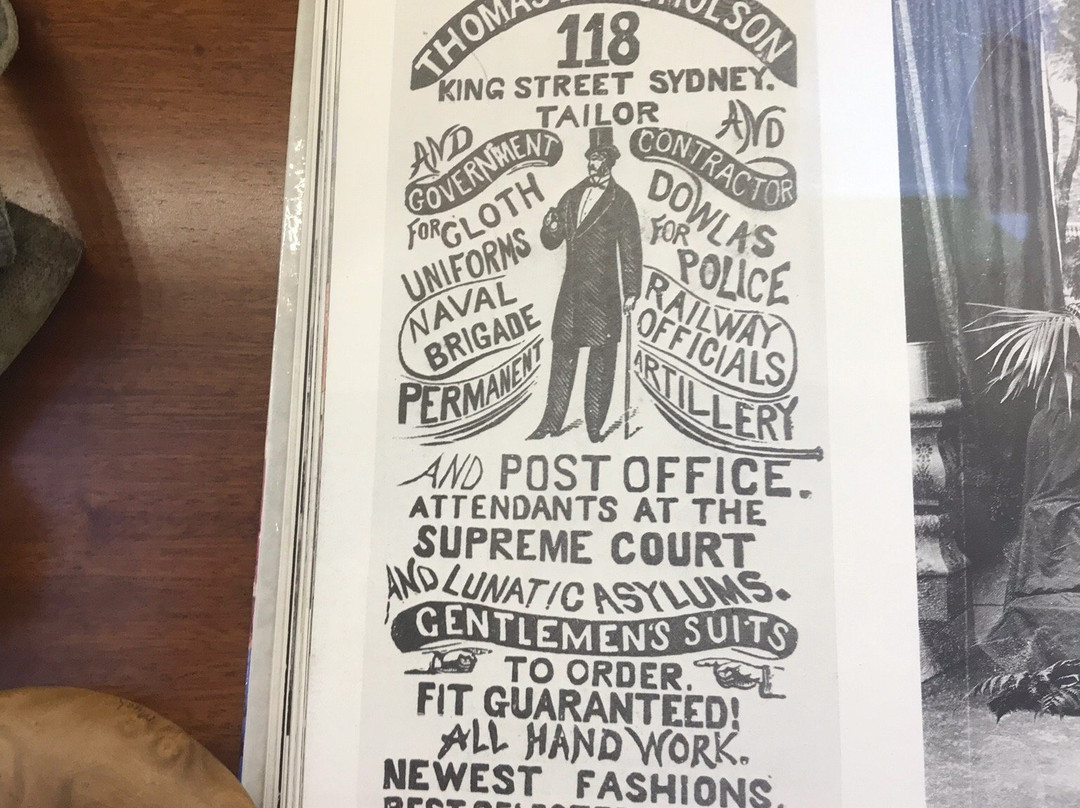 THOMAS
118
KING STREET SYDNEY.
TAILOR
AND GOVERNMENT
AND CONTRACTOR
FOR CLOTH
UNIFORMS
DOWLAS
FOR POLICE
NAVAL
BRIGADE
RAILWAY
OFFICIALS
PERMANENT
ARTILLERY
AND POST OFFICE.
ATTENDANTS AT THE
SUPREME COURT
AND LUNATIC ASYLUMS.
GENTLEMEN'S SUITS
TO ORDER.
FIT GUARANTEED!
ALL HAND WORK.
NEWEST FASHIONS.